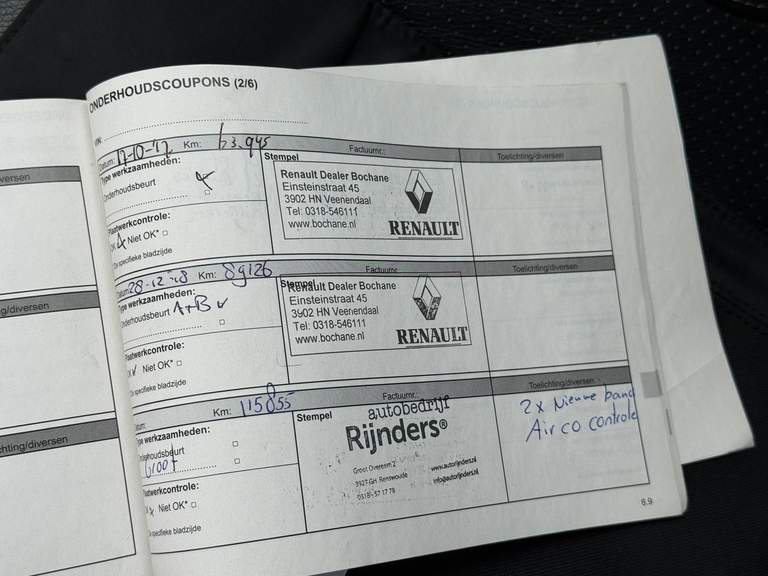 ONDERHOUDSCOUPONS (2/6)
VIN:
Datum: 17-10-17 Km: 63.945 Factuurnr.: Toelichting/diversen
Type werkzaamheden: Stempel
Onderhoudsbeurt
Renault Dealer Bochane
Einsteinstraat 45
3902 HN Veenendaal
Tel: 0318-546111
www.bochane.nl
RENAULT
Plaatwerkcontrole:
OK Niet OK*
*Zie specifieke bladzijde
Datum: 28-12-18 Km: 89126 Factuurnr. Toelichting/diversen
Type werkzaamheden: Stempel
Onderhoudsbeurt A+B
Renault Dealer Bochane
Einsteinstraat 45
3902 HN Veenendaal
Tel: 0318-546111
www.bochane.nl
RENAULT
Plaatwerkcontrole:
OK Niet OK*
*Zie specifieke bladzijde
Datum: Km: 115855 Factuurnr.: Toelichting/diversen
Type werkzaamheden: Stempel
Onderhoudsbeurt
Groot
autobedrijf
Rijnders®
Groot Overeem 2
3927 GH Renswoude
0318-57 17 78
www.autorijnders.nl
info@autorijnders.nl
2x Nieuwe band
Airco controle
Plaatwerkcontrole:
OK Niet OK*
*Zie specifieke bladzijde
6.9
versen
ng/diversen
chting/diversen